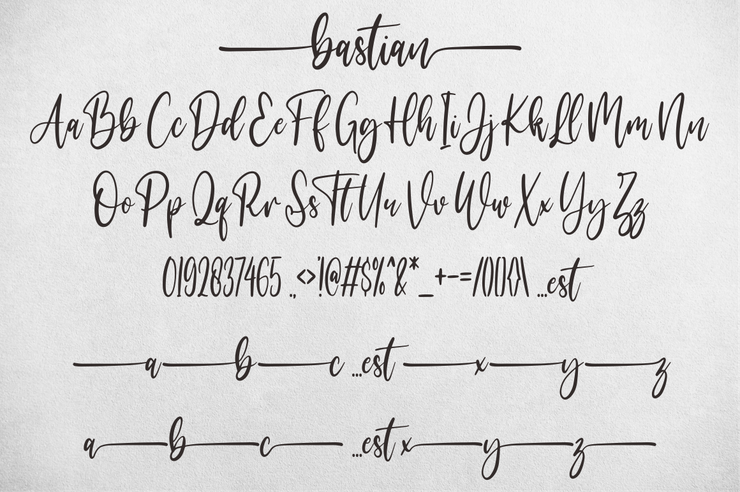 bastian
Aa Bb Cc Dd Ee Ff Gg Hh Ii Jj Kk Ll Mm Nn
Oo Pp Qq Rr Ss Tt Uu Vv Ww Xx Yy Zz
0192837465 .,<>'!@#$%^&*_+-=/()[]{}\ ...est
a b c ...est x y z
a b c ...est x y z